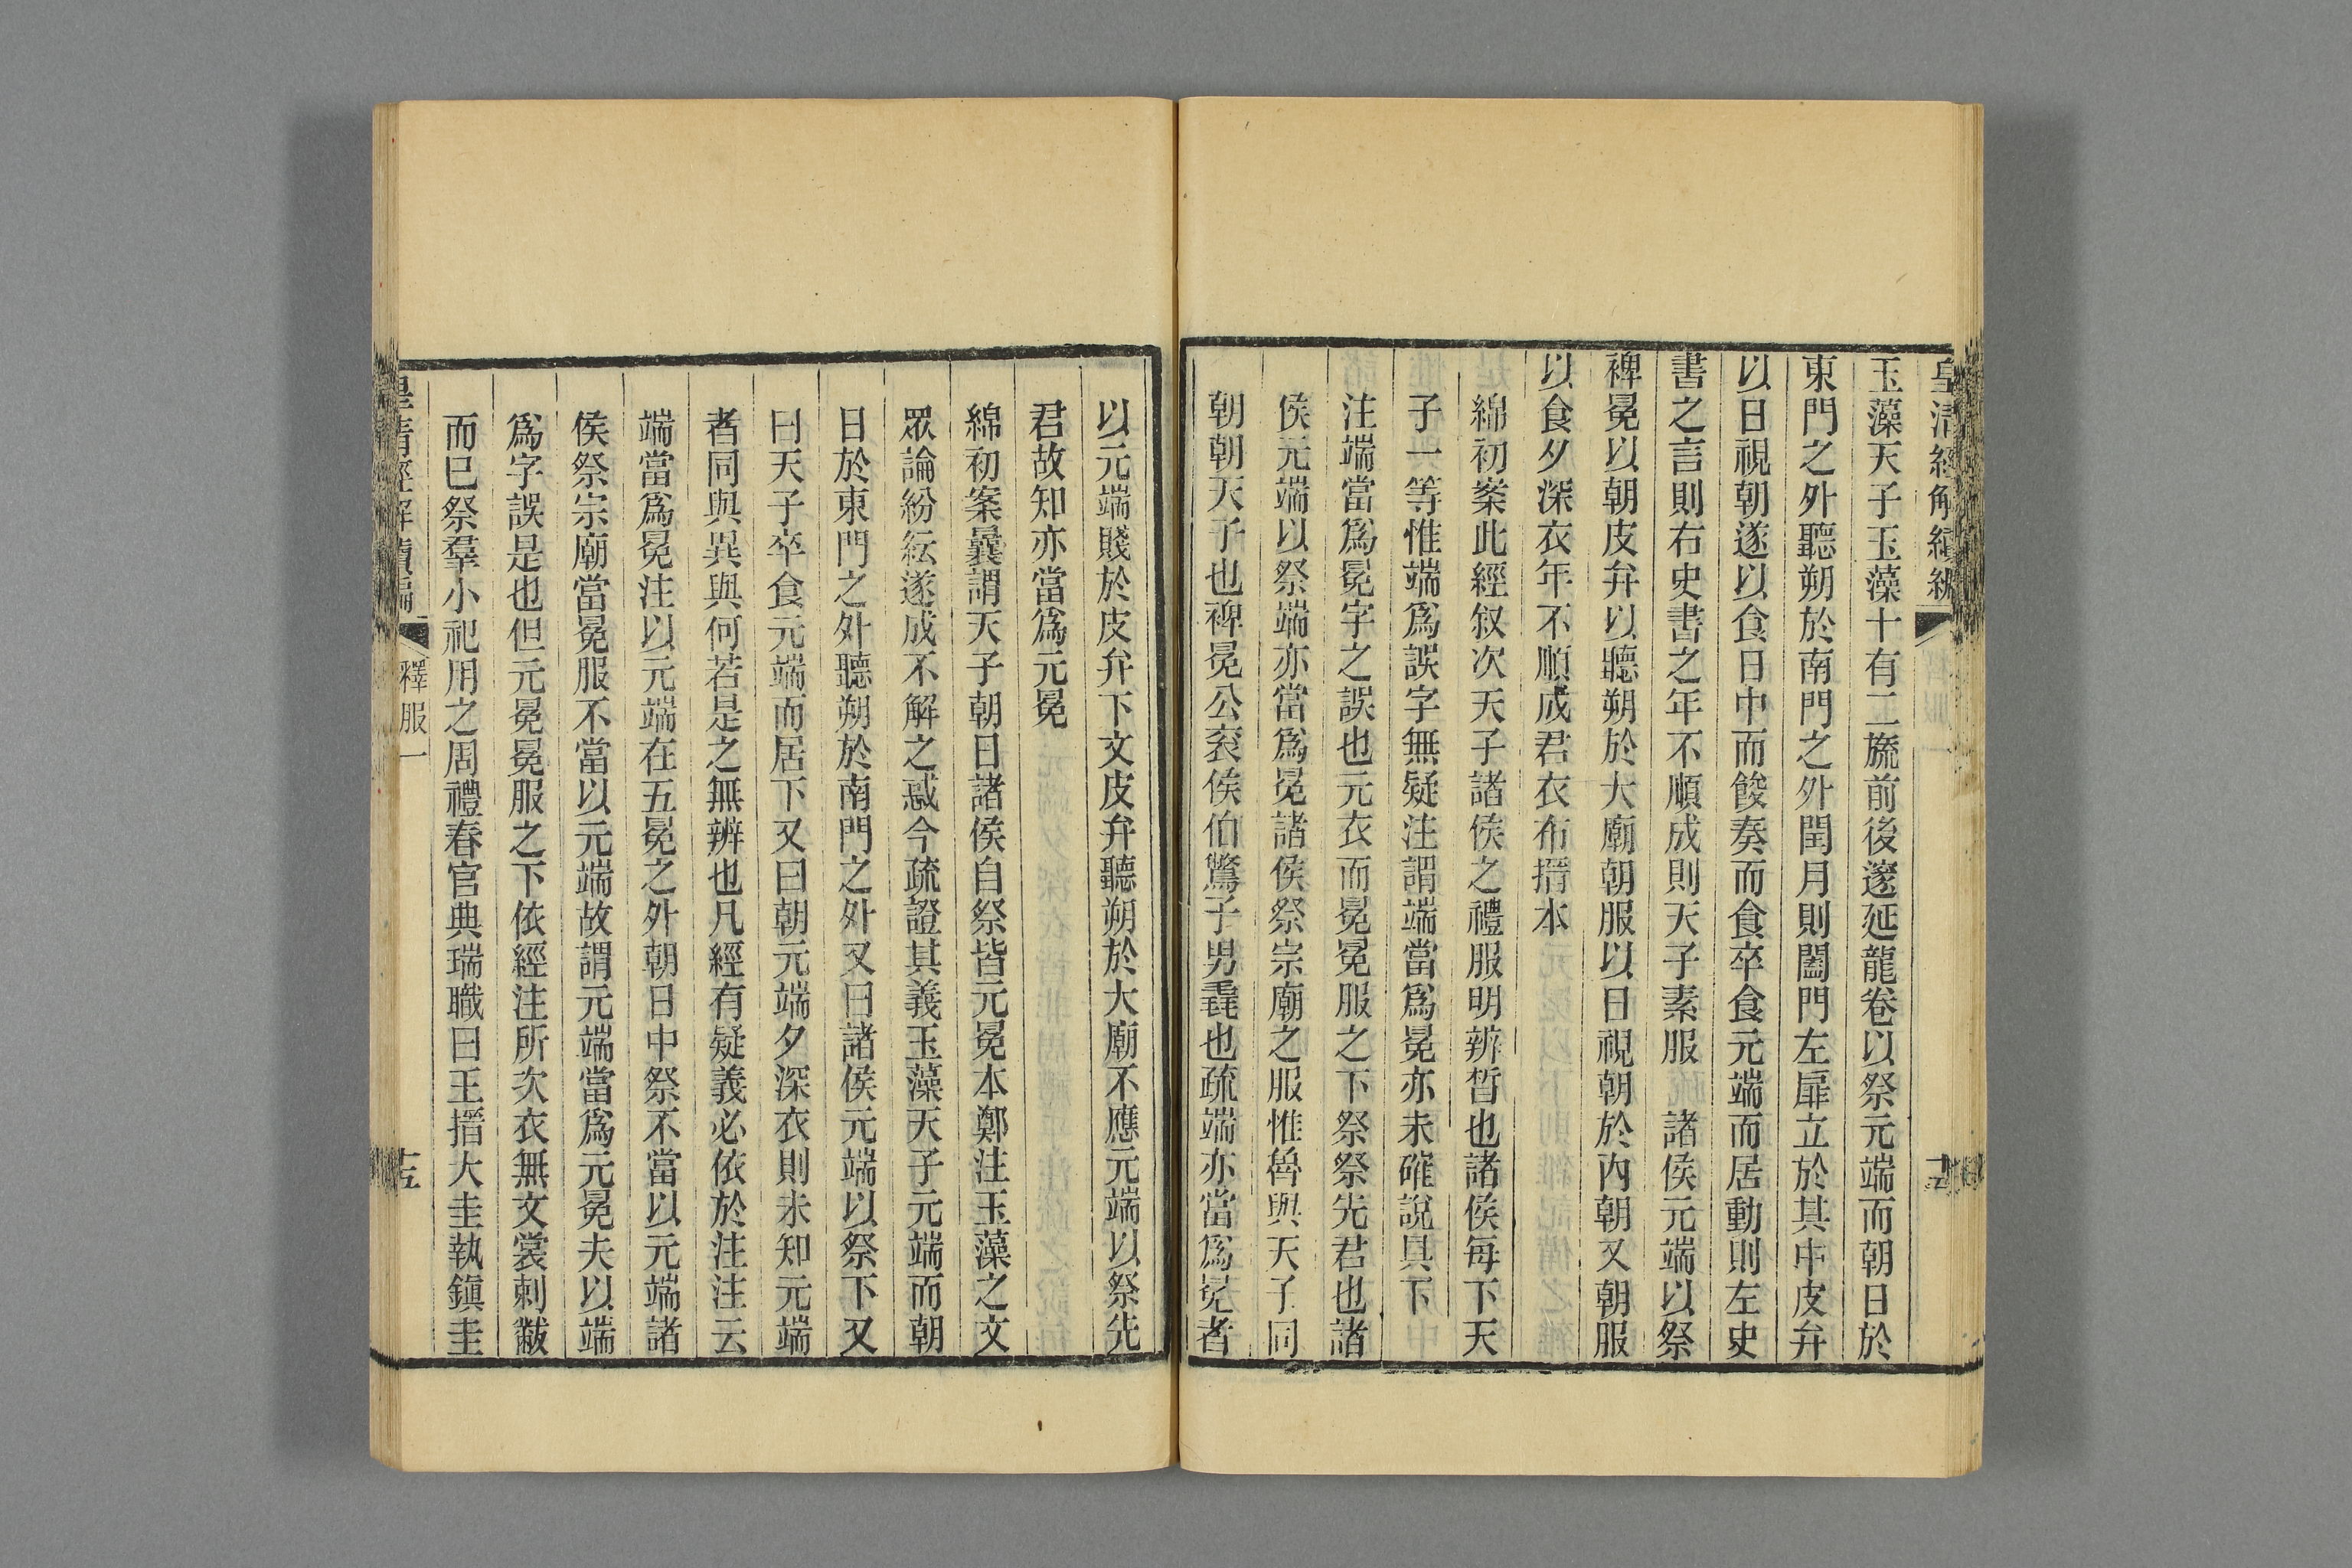 皇清經解續編
玉藻天子玉藻十有二旒前後邃延龍卷以祭元端而朝日於
東門之外聽朔於南門之外閏月則闔門左扉立於其中皮弁
以日視朝遂以食日中而餕奏而食卒食元端而居動則左史
書之言則右史書之年不順成則天子素服　諸侯元端以祭
裨冕以朝皮弁以聽朔於大廟朝服以日視朝於內朝又朝服
以食夕深衣年不順成君衣布搢本
綿初案此經叙次天子諸侯之禮服明辨晳也諸侯每下天
子一等惟端爲誤字無疑注謂端當爲冕亦未確說具下
注端當爲冕字之誤也元衣而冕冕服之下祭祭先君也諸
侯元端以祭端亦當爲冕諸侯祭宗廟之服惟魯與天子同
朝朝天子也裨冕公衮侯伯鷩子男毳也疏端亦當爲冕者
以元端賤於皮弁下文皮弁聽朔於大廟不應元端以祭先
君故知亦當爲元冕
綿初案曩謂天子朝日諸侯自祭皆元冕本鄭注玉藻之文
眾論紛紜遂成不解之惑今疏證其義玉藻天子元端而朝
日於東門之外聽朔於南門之外又曰諸侯元端以祭下又
曰天子卒食元端而居下又曰朝元端夕深衣則未知元端
者同與異與何若是之無辨也凡經有疑義必依於注注云
端當爲冕注以元端在五冕之外朝日中祭不當以元端諸
侯祭宗廟當冕服不當以元端故謂元端當爲元冕夫以端
爲字誤是也但元冕冕服之下依經注所次衣無文裳刺黻
而已祭羣小祀用之周禮春官典瑞職曰王搢大圭執鎮圭
皇清經解續編　釋服一　十五